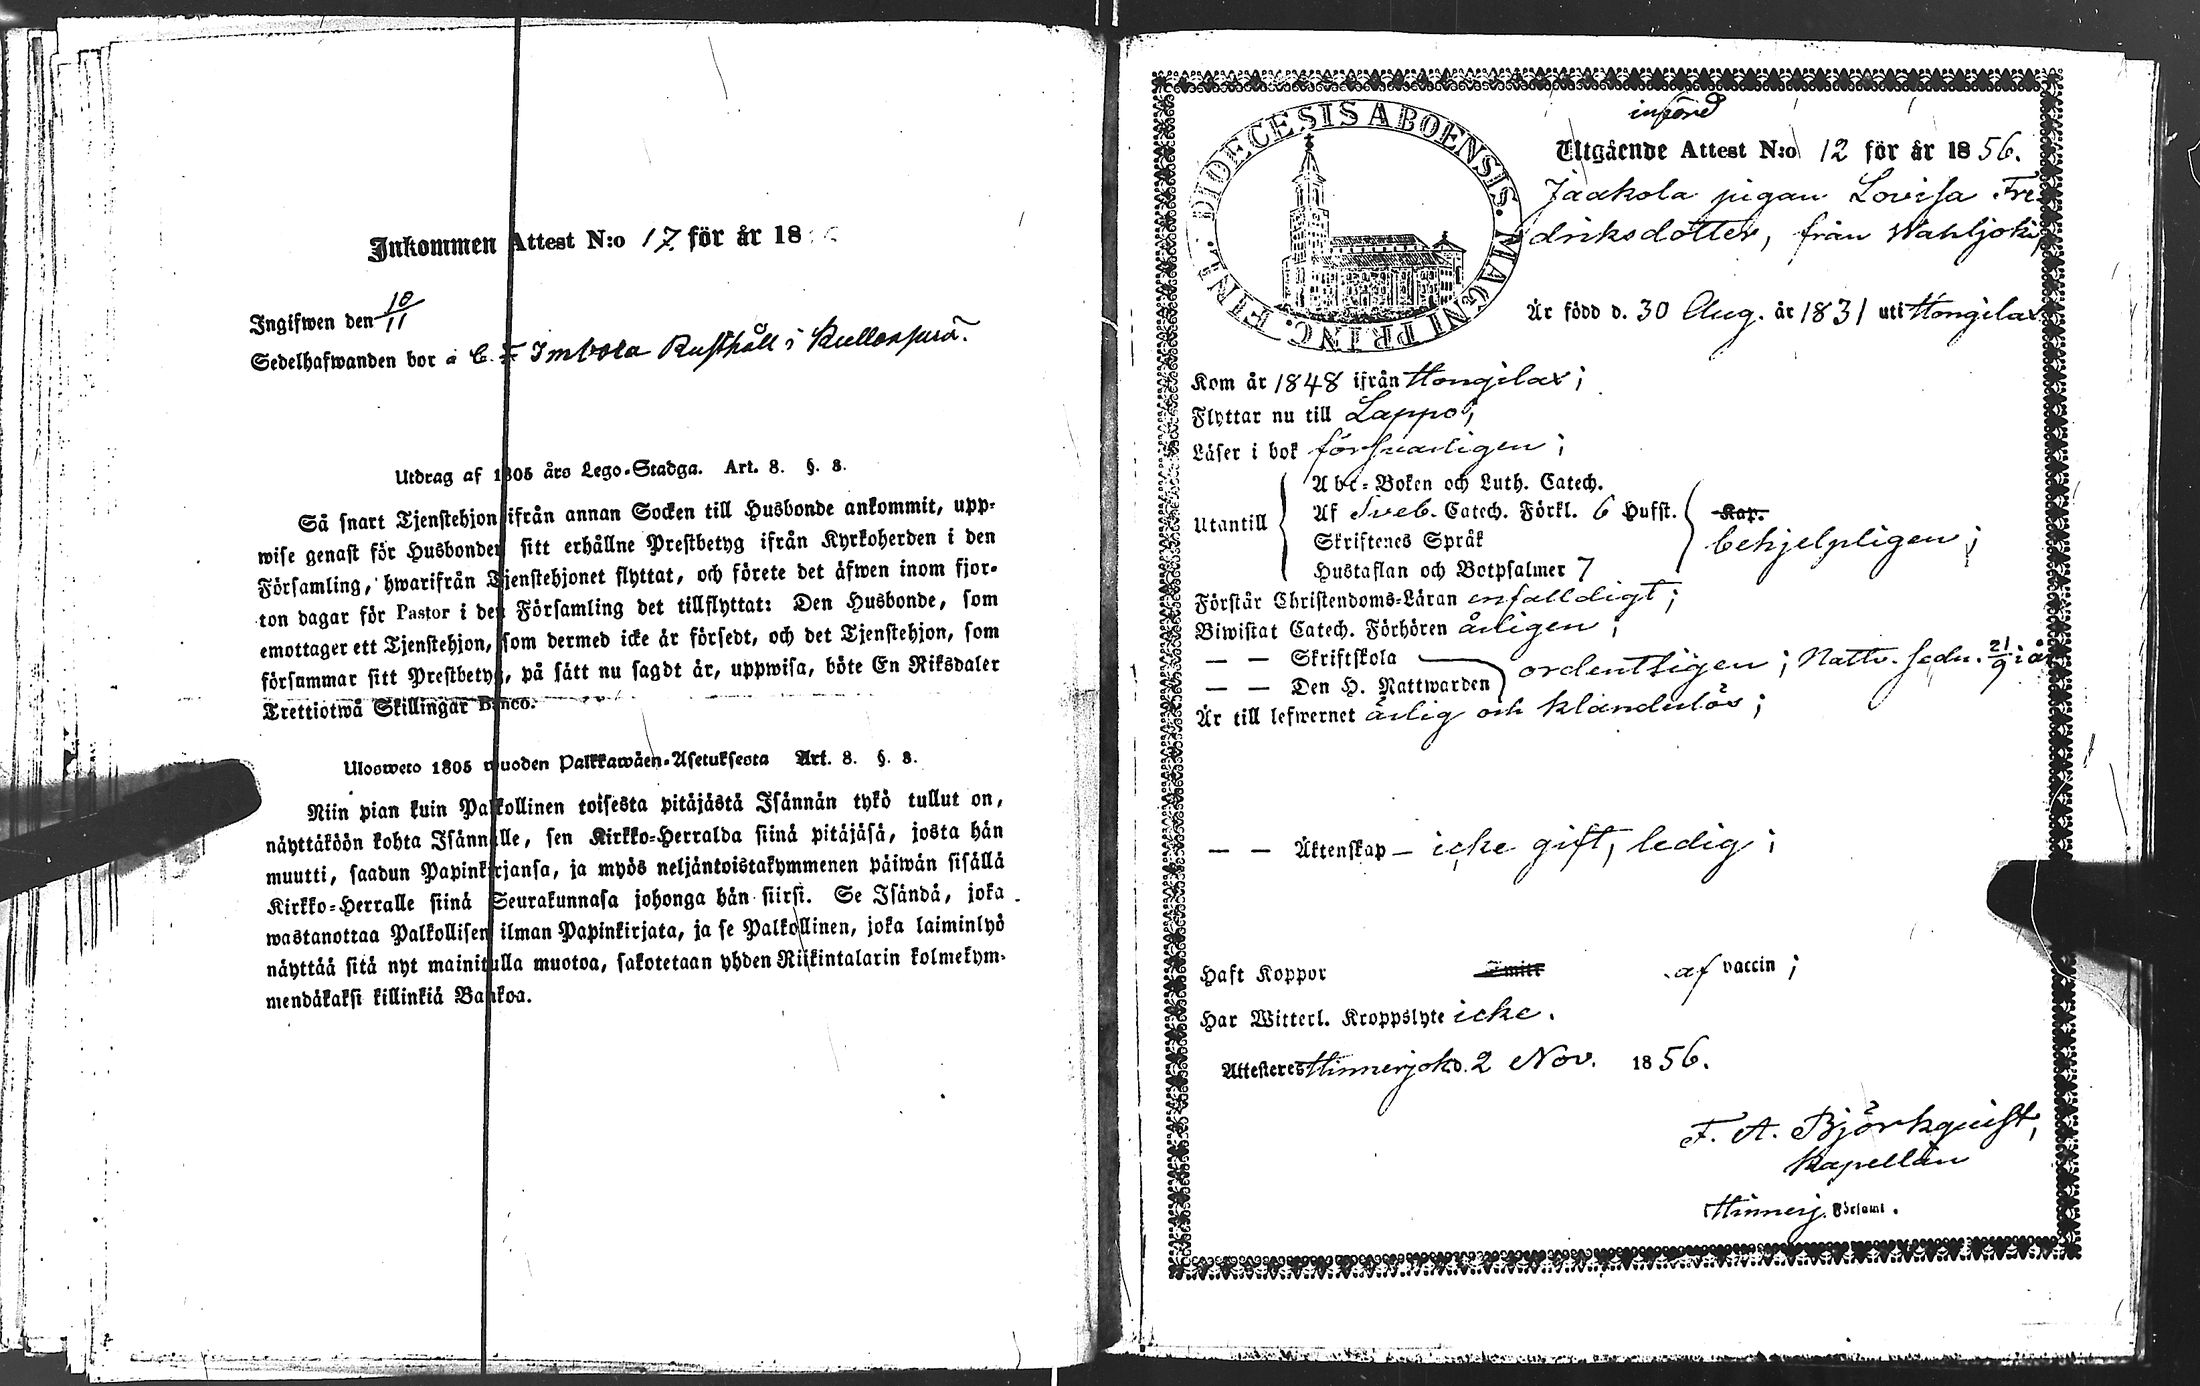 Inkommen Attest N:o 17 för år 18
Ingifwen den 10/11
Sedelhafwanden bor å Rusthåll i
Utdrag af 1805 års Lego-Stadga. Art. 8. §. 8.
Så snart Tjenstehjon ifrån annan Socken till Husbonde ankommit, upp-
wise genast för Husbonden sitt erhållne Prestbetyg ifrån Kyrkoherden i den
Församling, hwarifrån Tjenstehjonet flyttat, och förete det äfwen inom fjor-
ton dagar för Pastor i den Församling det tillflyttat: Den Husbonde, som
emottager ett Tjenstehjon, som dermed icke är försedt, och det Tjenstehjon, som
försummar sitt Prestbetyg, på sätt nu sagdt är, uppwisa, böte En Riksdaler
Trettiotwå Skillingar Banco.
Ulosweto 1805 wuoden Palkkawäen-Asetuksesta Art. 8. §. 8.
Niin pian kuin Palkollinen toisesta pitäjästä Isännän tykö tullut on,
näyttäköön kohta Isännälle, sen Kirkko-Herralda siinä pitäjäsä, josta hän
muutti, saadun Papinkirjansa, ja myös neljäntoistakymmenen päiwän sisällä
Kirkko-Herralle siinä Seurakunnasa johonga hän siirsi. Se Isändä, joka
wastanottaa Palkollisen ilman Papinkirjata, ja se Palkollinen, joka laiminlyö
näyttää sitä nyt mainitulla muotoa, sakotetaan yhden Riikintalarin kolmekym-
mendäkaksi killinkiä Bankoa.
införd
DIOECESIS ABOENSIS. MAGNI PRINC. FINL.
Utgående Attest N:o 12 för år 1856.
Jaakola pigan Lovisa Fre
driksdotter, från Wahljoki,
Är född d. 30 Aug. år 1831 uti Hongilax
Kom år 1848 ifrån Hongilax;
Flyttar nu till Lappo;
Läser i bok försvarligen;
Utantill
Abc-Boken och Luth. Catech.
Af Sveb. Catech. Förkl. 6 Hufst.
Skriftenes Språk
Hustaflan och Botpsalmer 7
Kap.
behjelpligen;
Förstår Christendoms-Läran enfalldigt;
Biwistat Catech. Förhören årligen;
— — Skriftskola
— — Den H. Nattwarden
ordentligen; Nattv. sedn. 21/9 i år
Är till lefwernet ärlig och klanderlös;
— — Äktenskap — icke gift, ledig;
Haft Koppor Smitt af vaccin;
Har Witterl. Kroppslyte icke.
Attesteres Hinnerjoki d. 2 Nov. 1856.
F. A. Björkquist,
Kapellan
Hinnerj. Församl.